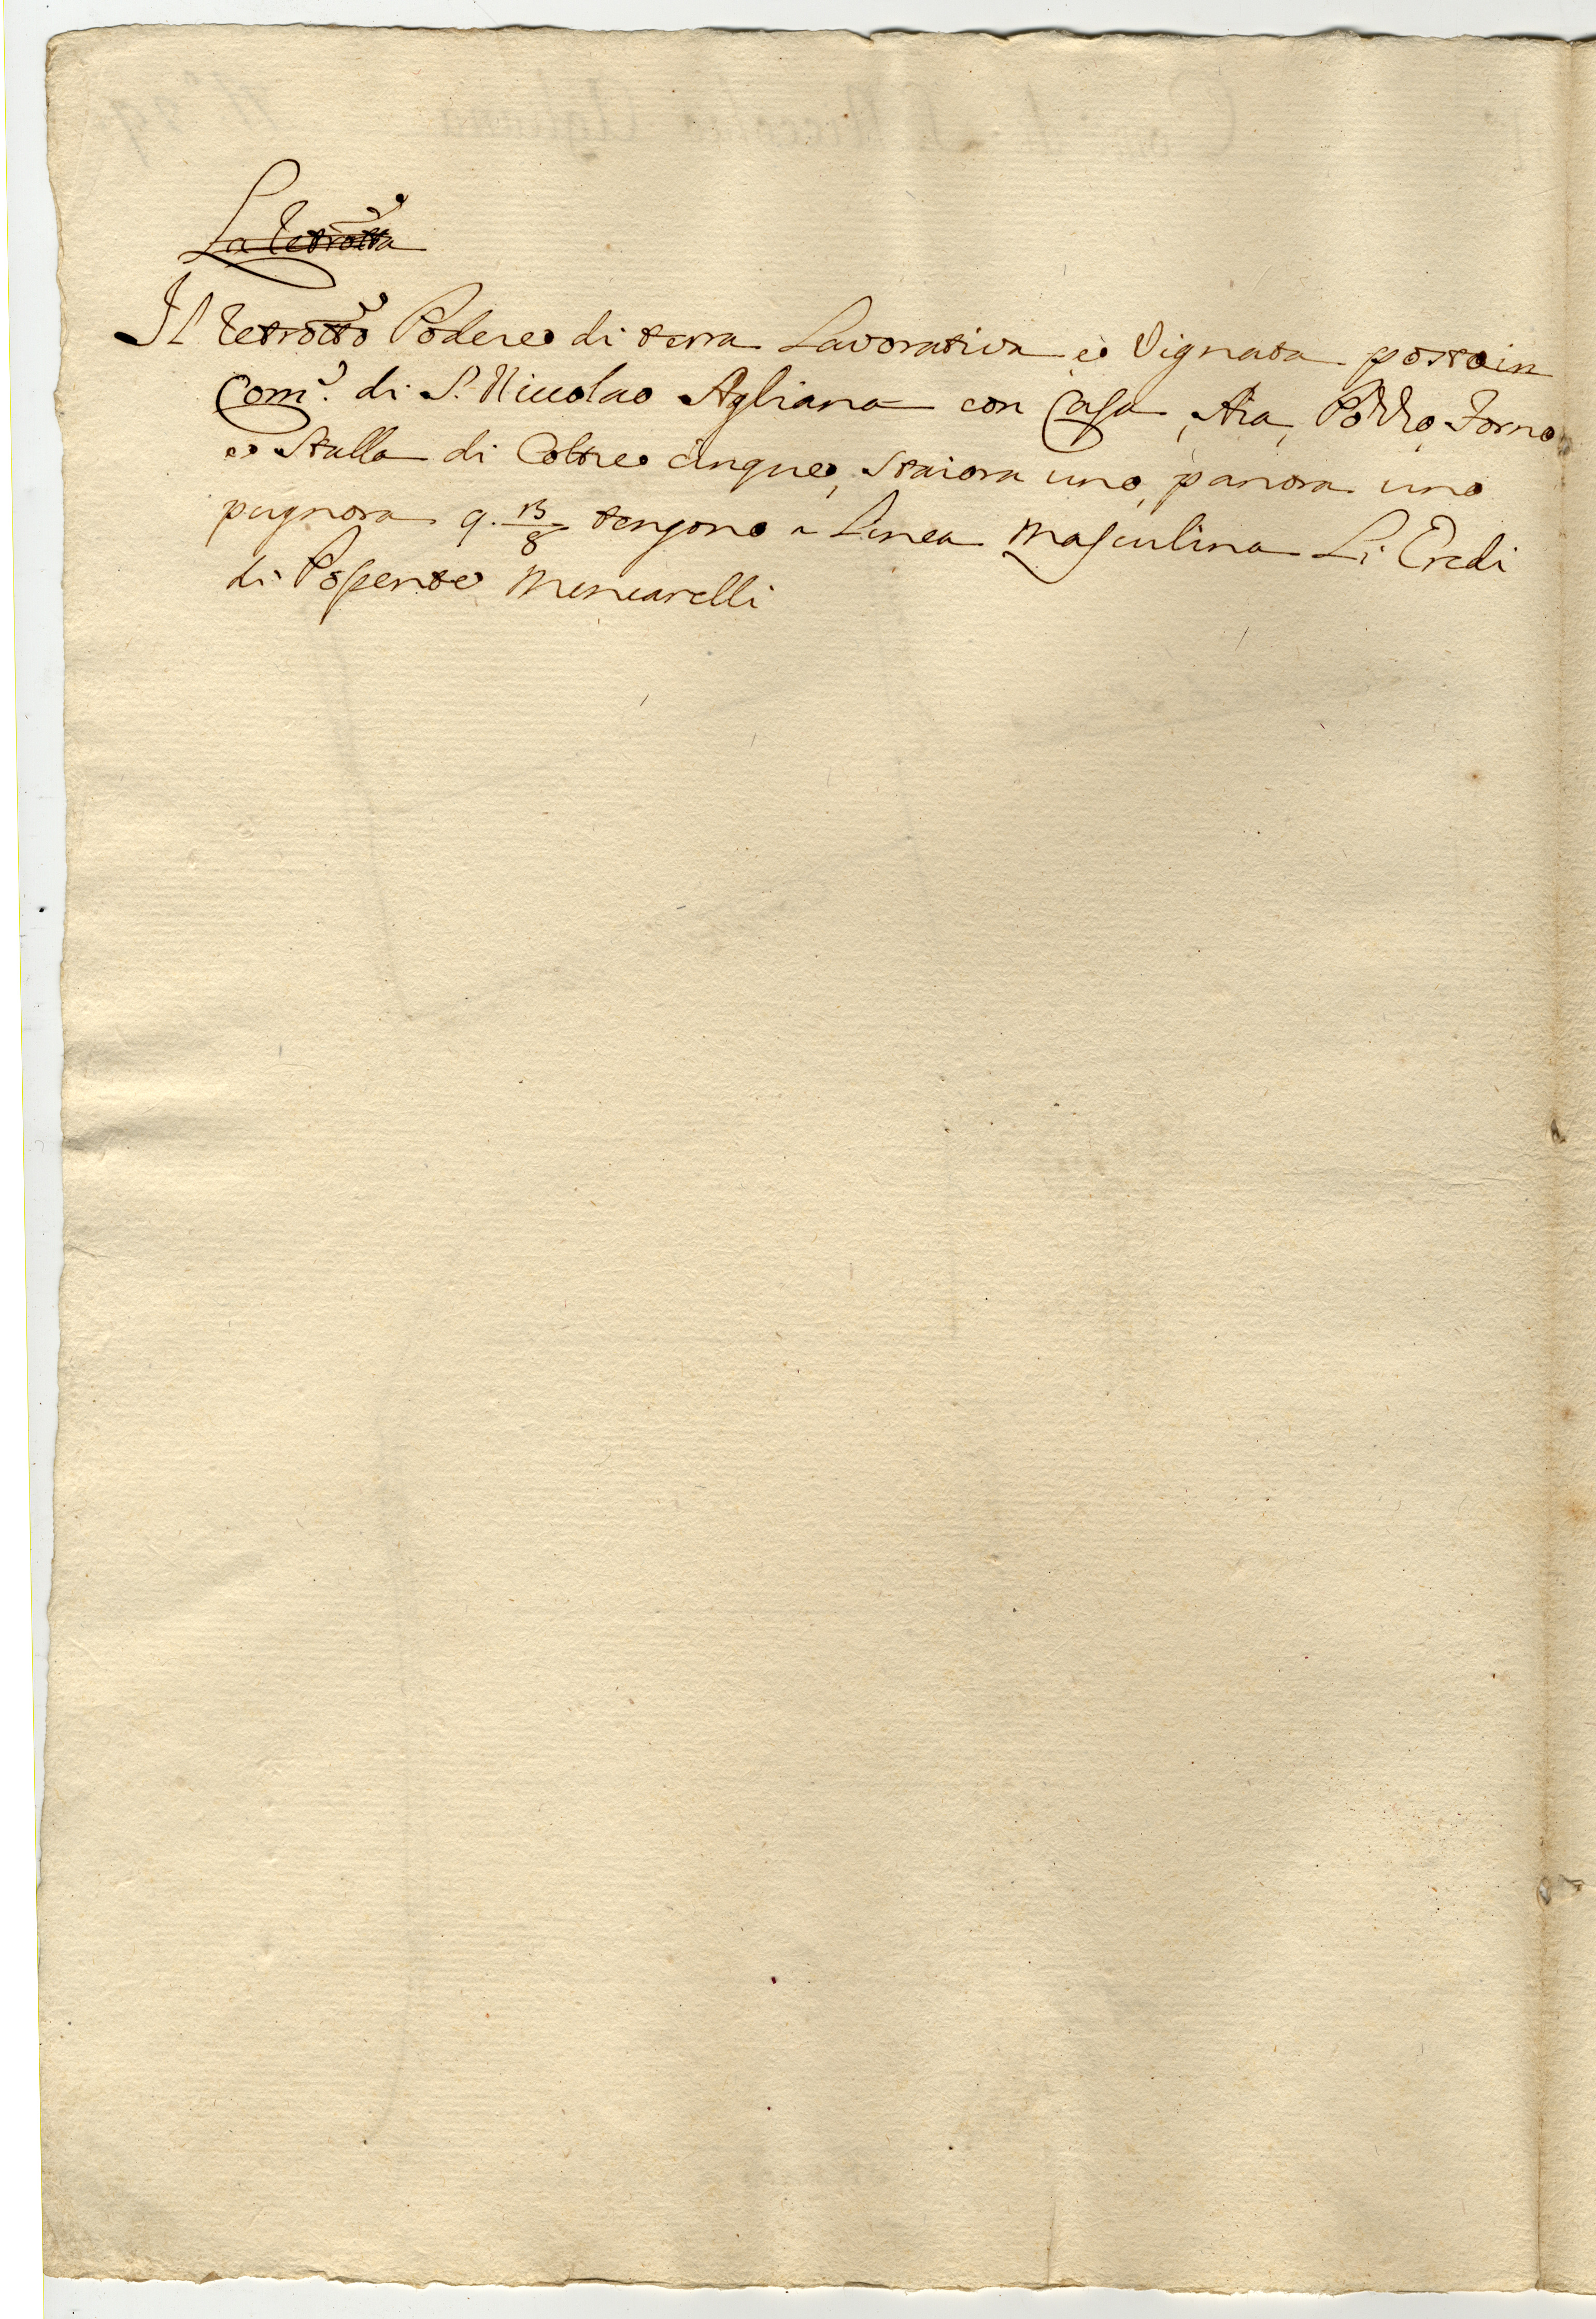 La Tetrotta
Il Tetrotto Podere di terra Lavorativa e Vignata posto in
Com.e di S. Niccolao Agliana con Casa, Aia, Pozzo, Forno
e Stalla di Coltre cinque, Staiora uno, panora uno
pugnora 9. 13/8 tengono a Linea Masculina Li Eredi
di Possente Mencarelli